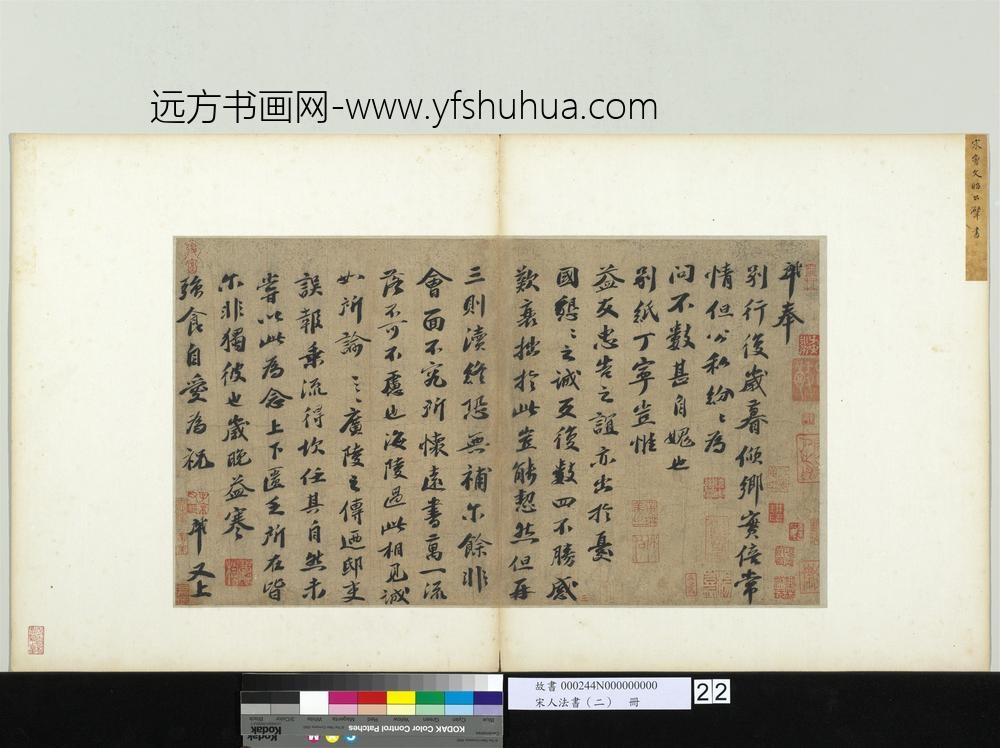 远方书画网-www.yfshuhua.com
奉
別行後歲暮傾鄉實倍常
情但公私紛〻為
問不數甚自媿也
別紙丁寧豈惟
益友忠告之誼亦出於憂
國懇〻之誠反復數四不勝感
歎衰拙於此豈能恝然但再
三則瀆縱恐無補尔餘非
會面不究所懷遠書萬一流
落不可不慮也海陵過此相見誠
如所論〻廣陵之傳迺邸吏
誤報乗流得坎任其自然未
嘗以此為念上下匱乏所在皆
尓非獨彼也歲晚益寒
強食自愛為祝
又上
故書 000244N000000000
宋人法書（二） 冊
22
KODAK Color Control Patches
Blue
Cyan
Green
Yellow
Red
Magenta
White
3/Color
Black